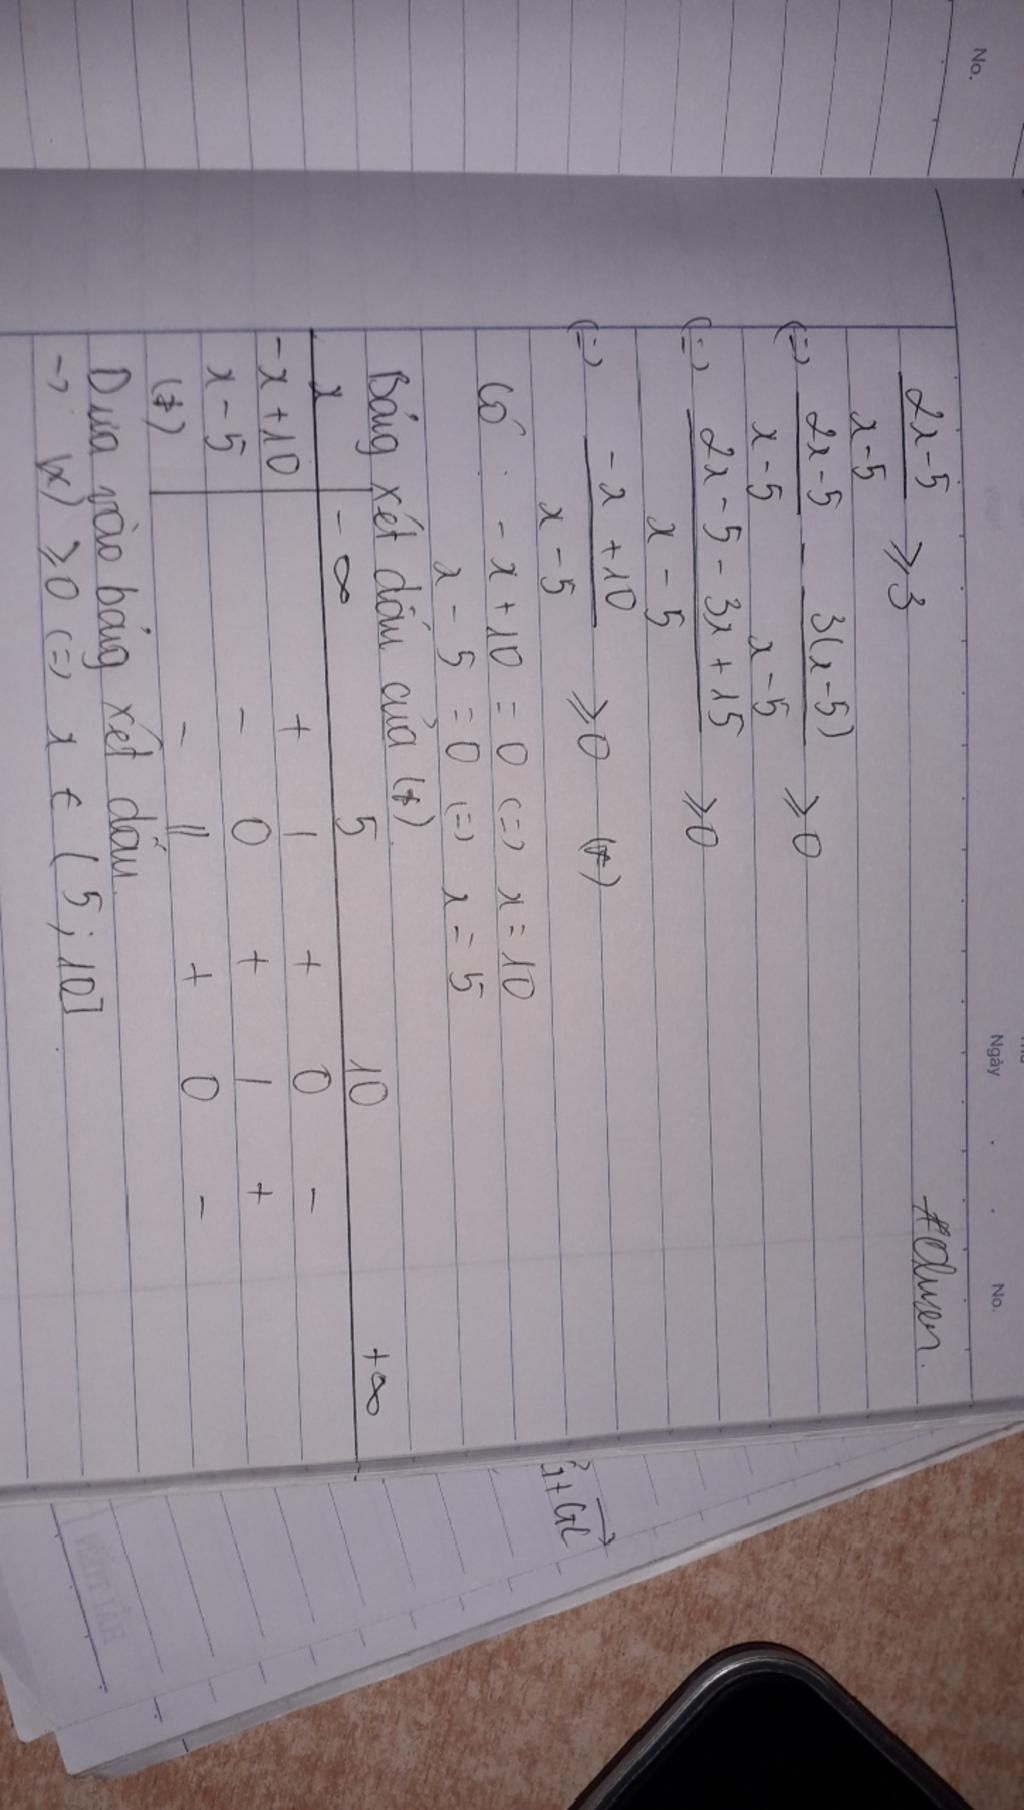 No.
Ngày . . No.
#Olwen.
2x-5 / x-5 ⩾ 3
(=) 2x-5 / x-5 - 3(x-5) / x-5 ⩾ 0
(=) 2x - 5 - 3x + 15 / x - 5 ⩾ 0
(=) -x + 10 / x - 5 ⩾ 0 (*)
Có - x + 10 = 0 (=) x = 10
x - 5 = 0 (=) x = 5
Bảng xét dấu của (*)
x - ∞ 5 10 + ∞
-x + 10 + | + 0 -
x - 5 - 0 + | +
(*) - || + 0 -
Dựa vào bảng xét dấu
-> ⩾ 0 (=) x ∈ ( 5 ; 10]
+GC
HẢI TIẾN